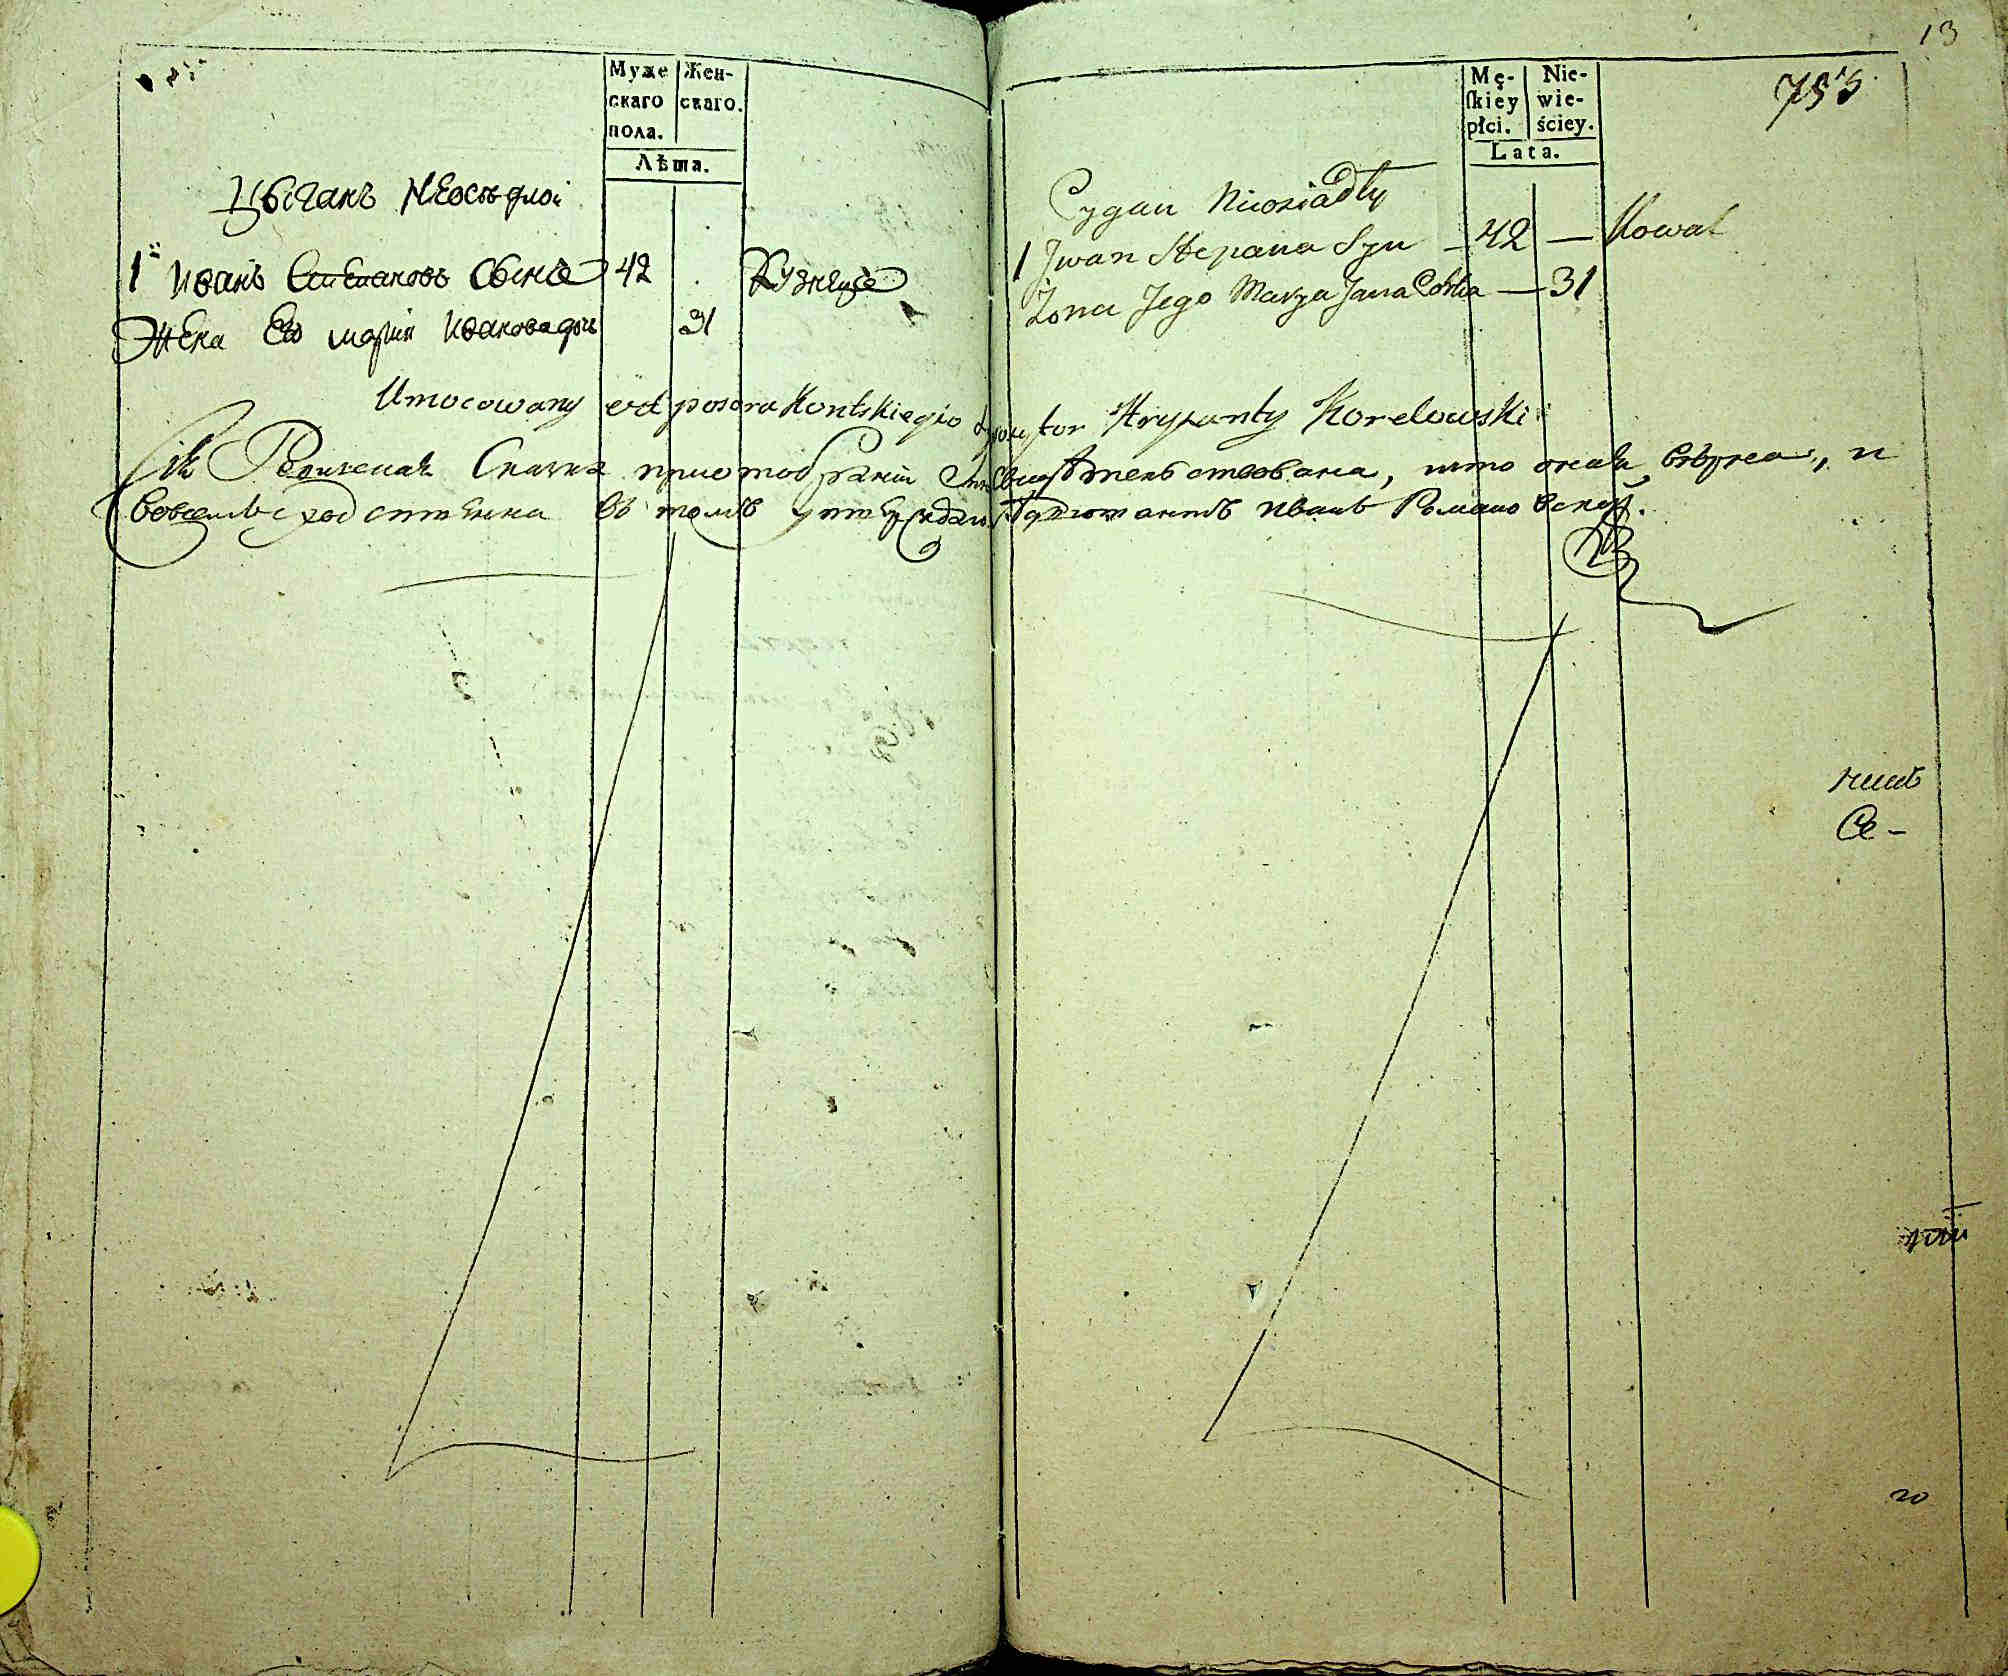 Муже
скаго
пола.
Жен-
скаго.
Лѣта.
Цыганъ неосѣдлои
1 Иванъ Степановъ сынъ 42 кузнецъ
Жена Его Марія Иванова дочь 31
13
753
Mę-
ſkiey
płci.
Nie-
wie-
ściey.
Lata.
Cygan Nieosiadły
1 Jwan Stepana Syn — 42 — Kowal
Żona Jego Marya Jana Córka — 31
Umocowany od posora Kontskiego Krysanty Korelowski
Сія Скаска при отобраніи свидѣтельствована, что она вѣрна, и
во всемъ сходственна въ томъ утверждаю Адъютантъ Иванъ Романовскій.
Се-
20